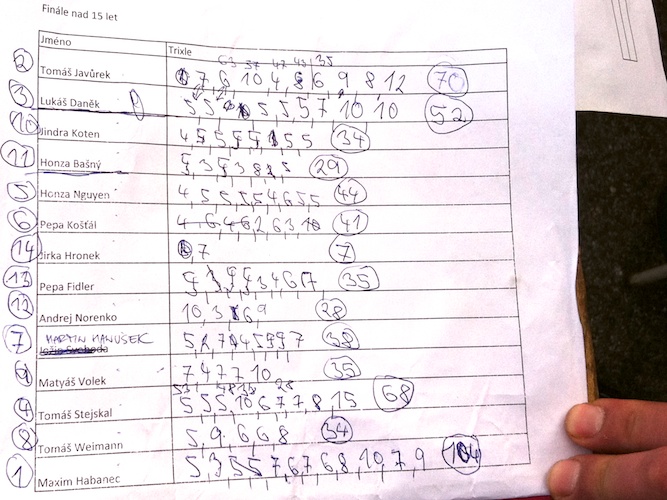 Finále nad 15 let
Jméno Trixle
63 57 47 43 35
2 Tomáš Javůrek 7 6 10 4 8 6 9 8 12 70
3 Lukáš Daněk 5 5 5 5 5 7 10 10 52
10 Jindra Koten 4 5 5 5 5 5 5 34
11 Honza Bašný 5 3 5 3 8 5 29
5 Honza Nguyen 4 5 5 5 5 4 6 5 5 44
6 Pepa Košťál 4 6 4 6 2 6 3 10 41
14 Jirka Hronek 7 7
13 Pepa Fidler 5 3 4 3 4 6 35
12 Andrej Norenko 10 3 6 9 28
MARTIN MANUŠEK
7 5 2 7 4 5 7 38
Matyáš Volek 7 4 7 7 10 35
4 Tomáš Stejskal 5 5 5 10 6 7 7 8 15 68
8 Tomáš Weimann 5 9 6 6 8 34
1 Maxim Habanec 5 3 5 5 7 6 7 6 8 10 7 9 104